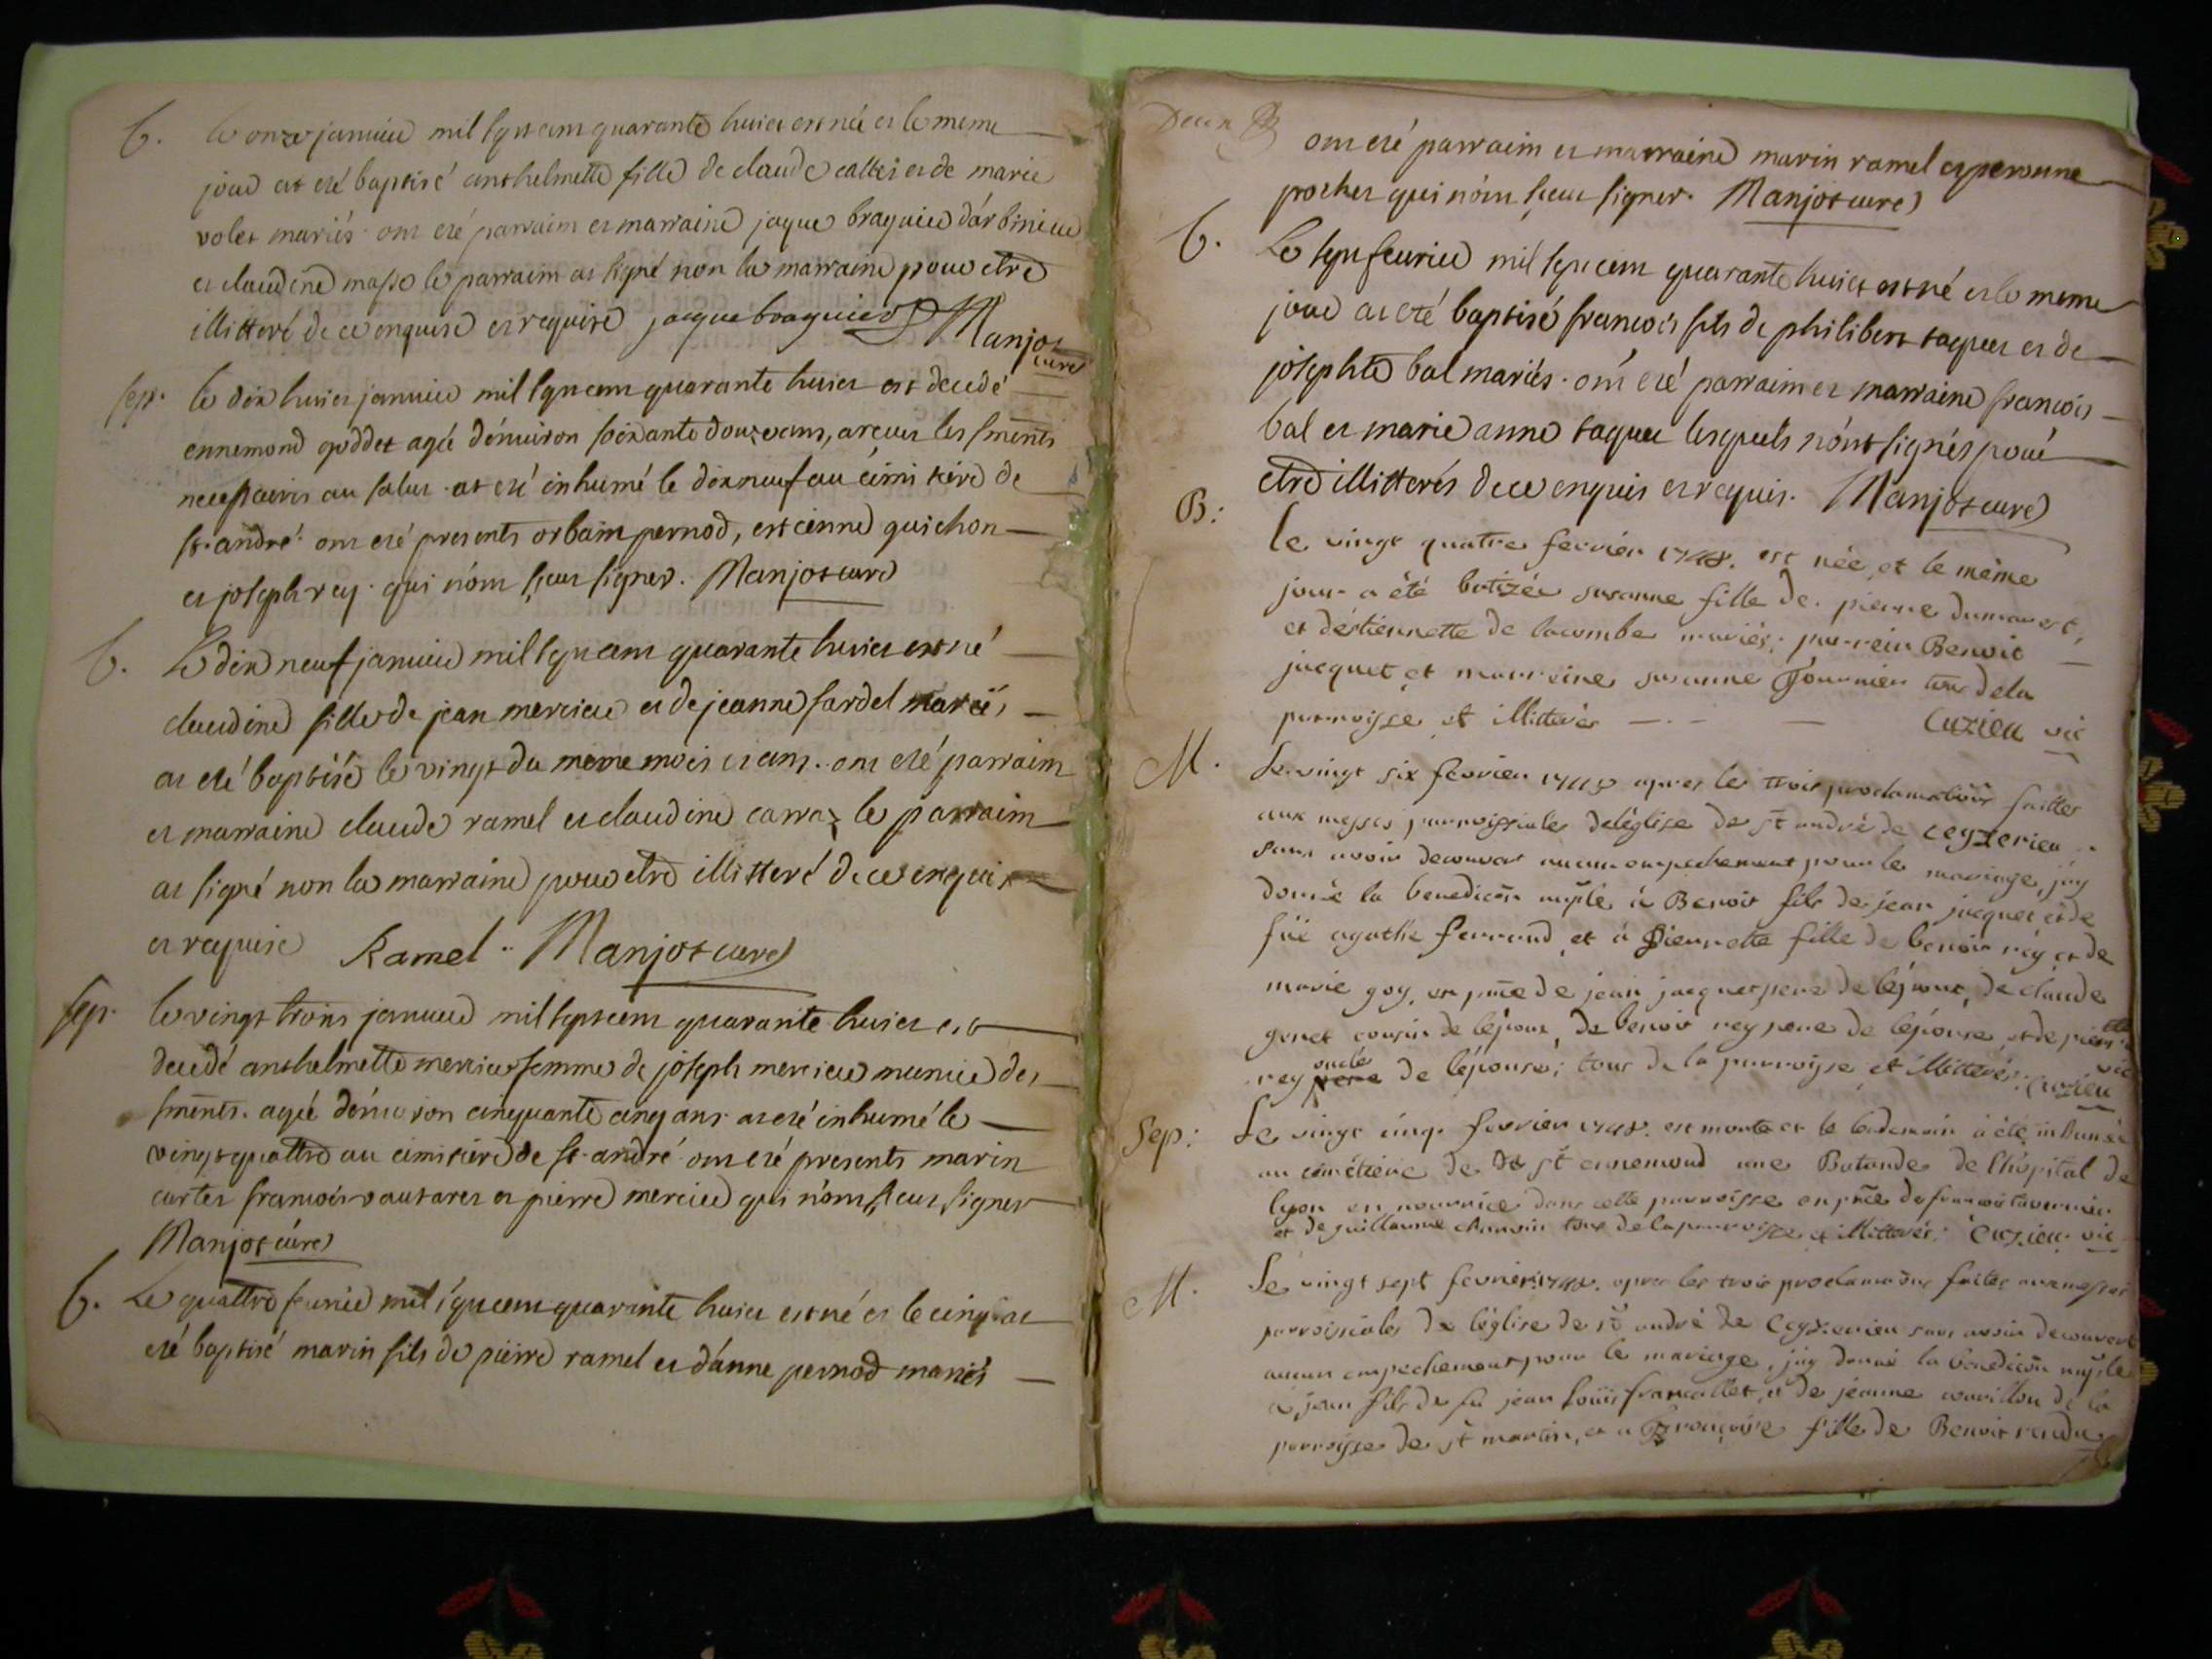 b. le onze januier mil sept cent quarante huict est née et le meme
jour at eté baptisé anthelmette fille de claude callet et de marie
volet mariés. ont eté parraim et marraine jaque braquier d'arbinieu
et claudine masse le parraim at signé non la marraine pour etre
illitteré de ce enquise et requise jaque braquier Manjot
curé
sep. le dix huict januier mil sept cent quarante huict est decedé
ennemond goddet agé d'enuiron soixante douze ans, a receu les sments
necessaires au salut. at eté inhumé le dix neuf au cimitiere de
st. andré. ont eté presents orbain pernod, estienne quichon
et joseph rey. qui n'ont sceu signer. Manjot curé
b. Le dix neuf januier mil sept cent quarante huict est né
claudine fille de jean mercier et de jeanne fardel mariés
at eté baptisé le vingt du meme mois et ans. ont eté parraim
et marraine claude ramel et claudine carraz le parraim
at signé non la marraine pour etre illitteré de ce enquise
et requise Ramel. Manjot curé
sep. le vingt trois januier mil sept cent quarante huict est
decedé anthelmette mercier femme de joseph mercier munie des
sments. agée d'enuiron cinquante cinq ans. at eté inhumé le
vingt quattre au cimitiere de st. andré ont eté presents marin
curtet francois vautaret et pierre mercier qui n'ont sceu signer
Manjot curé
b. Le quattre feurier mil sept cent quarante huict est né et le cinq at
eté baptisé marin fils de pierre ramel et d'anne pernod mariés
Deux
ont eté parraim et marraine marin ramel et peronne
pochet qui n'ont sceu signer. Manjot curé
b. Le sept feurier mil sept cent quarante huict est né et le meme
jour at eté baptisé francois fils de philibert taquet et de
josephte bal mariés. ont eté parraim et marraine francois
bal et marie anne taquet lesquels n'ont signés pour
etre illitterés de ce enquis et requis. Manjot curé
B: le vingt quatre fevrier 1748. est née, et le même
jour a été batizée susanne fille de pierre dumarest,
et d'éstiennette de lacombe mariés; parrein Benoit
jacquet et marreine susanne Fournier tous dela
parroisse et illitterés Cuzieu vic
M. Le vingt six fevrier 1748 apres les trois proclamations faittes
aux messes parroissiales de léglise de st andré de ceyzerieu
sans avoir decouvert aucun empechement pour le mariage, j'ay
donné la benediction nuptle à Benoit fils de jean jacquet et de
füe agathe ferrand, et à Pierrette fille de benoit rey et de
marie goy, en pnce de jean jacquet pere de lépoux, de claude
genet cousin de lépoux, de benoit rey pere de lépouse, et de pierre
rey pere oncle de lépouse; tous de la parroisse et illitterés. Cuzieu vic
Sep: Le vingt cinq fevrier 1748. est morte et le lendemain a été inhumée
au cimetiere de st ennemond une Batarde de l'hôpital de
lyon en nourrice dans cette parroisse en pnce de francois tavernier
et de guillaume chauvin tous de la parroisse et illitterés; Cuzieu vic
M. Le vingt sept fevrier 1748. apres les trois proclamations faites aux messes
parroissiales de léglise de st andré de Ceyzerieu sans avoir decouvert
aucun empechement pour le mariage, j'ay donné la benediction nuptle
à jean fils de fû jean loüis francallet, et de jeanne couvillon de la
parroisse de st martin, et a Françoise fille de Benoit rendu